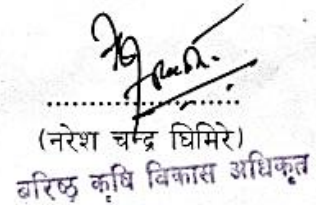 ....................
(नरेश चन्द्र घिमिरे)
बरिष्ठ कृषि विकास अधिकृत